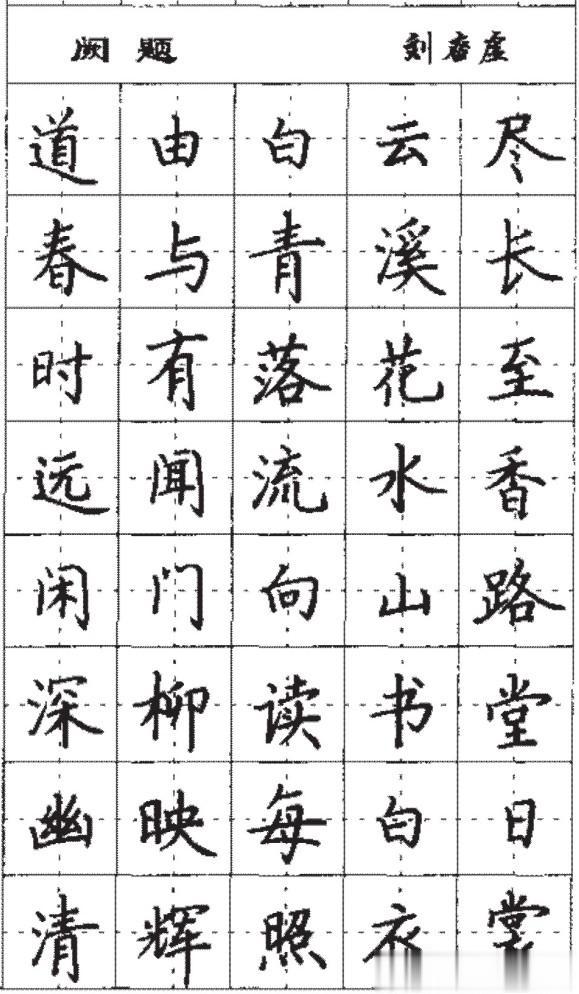 阙 题 刘眘虚
道由白云尽
春与青溪长
时有落花至
远闻流水香
闲门向山路
深柳读书堂
幽映每白日
清辉照衣裳